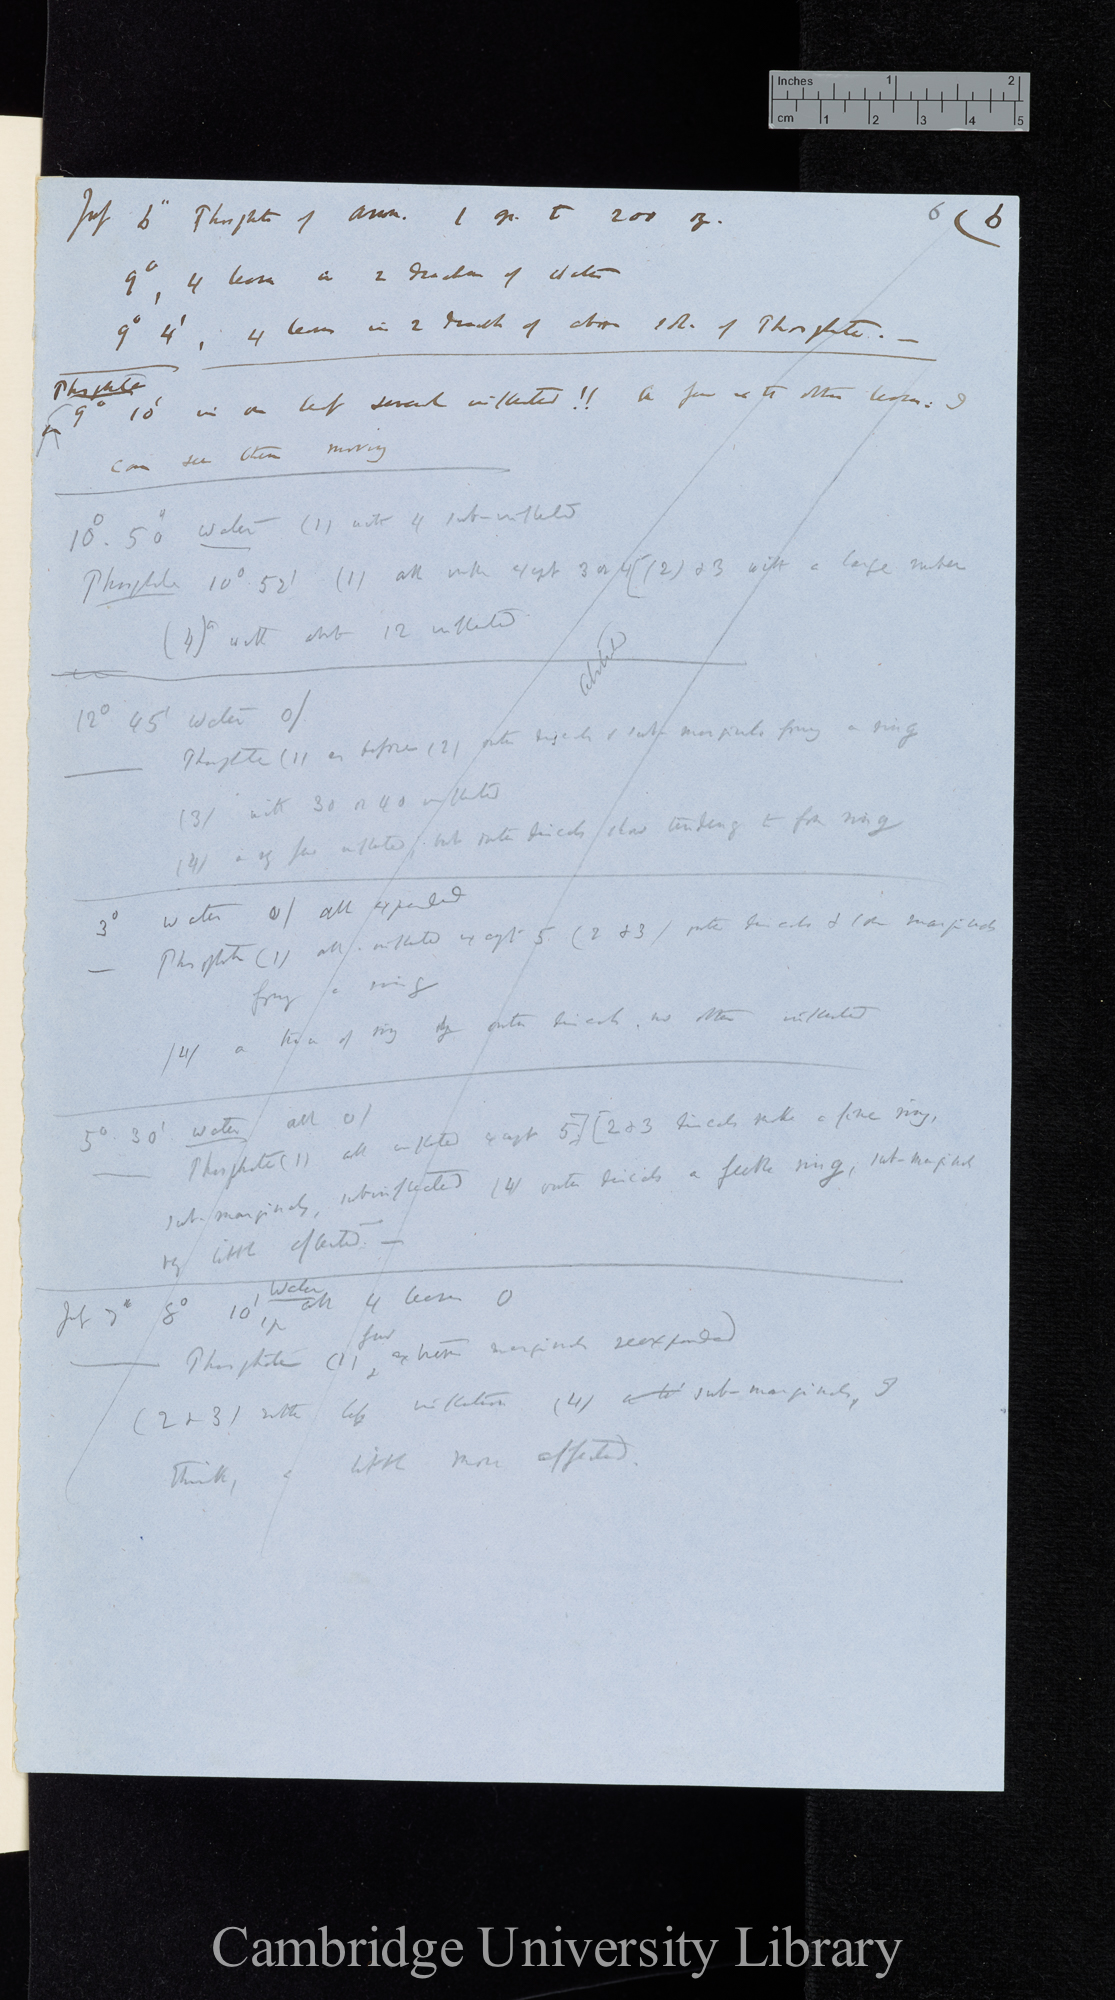 Inches 1 2
cm 1 2 3 4 5
6 (6
July 6" Phosphate of Amm. 1 gr. to 200 oz.
9°, 4 leaves in 2 drachm of Water
9° 4', 4 leaves in 2 drachm of above sol. of Phosphate. —
Phosphate
9° 10' in one leaf several inflected!! a few with other leaves: I
can see them moving
10°. 50' Water (1) with 4 sub-inflected
Phosphate 10° 52' (1) all infl. except 3 or 4 [(2) & 3 with a large number
(4) with about 12 inflected
tabulated
12° 45' Water 0/
Phosphate (1) as before (2) outer discals & sub-marginals forming a ring
(3) with 30 or 40 inflected
(4) very few inflected, but outer discals show tendency to form ring
3° Water 0/ all expanded
Phosphate (1) all inflected except 5 (2 & 3) outer discals & some marginals
forming a ring
(4) a of ring by outer discals, no other inflected
5° 30' Water all 0/
Phosphate (1) all inflected except 5] [2 & 3 discals make a fine ring,
sub-marginals, subinflected (4) outer discals a feeble ring, sub-marginal
very little affected. —
Water
July 7" 8° 10' all 4 leaves 0
few
Phosphate (1) extreme marginals reexpanded
(2 & 3) rather less inflection (4) sub-marginals, I
think, a little more affected.
Cambridge University Library